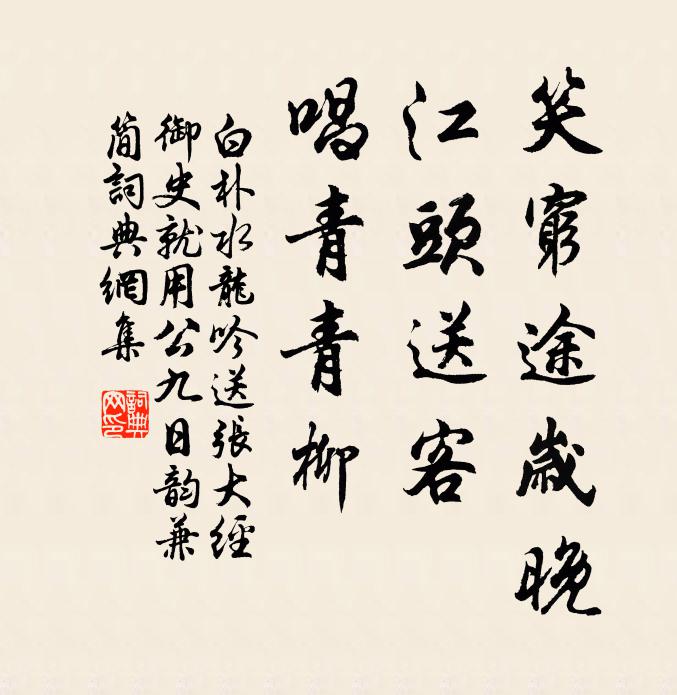 笑窮途歲晚
江頭送客
唱青青柳
白朴水龍吟送張大經
御史就用公九日韵兼
簡詞典網集
詞典
网印